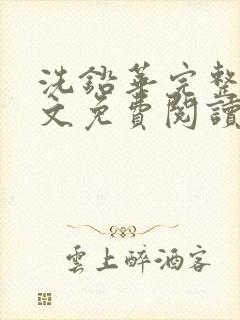 洗鉛華完整
文免費閱讀
雲上醉酒客